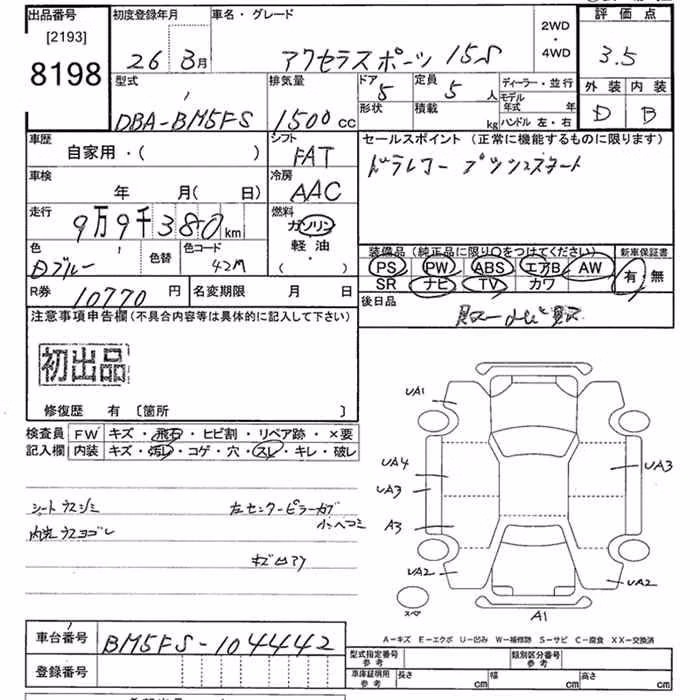 出品番号
[2193]
8198
初度登録年月
26 3月
車名・グレード
アクセラスポーツ 15S
2WD
・
4WD
評価点
3.5
型式
DBA-BM5FS
排気量
1500cc
ドア
5
定員
5人
形状
積載
kg
ディーラー・並行
モデル
年式 年
ハンドル 左・右
外装 内装
D B
車歴
自家用・( )
シフト
FAT
セールスポイント (正常に機能するものに限ります)
ドラレコー プッシュスタート
車検
年 月( 日)
冷房
AAC
走行
9万9千380km
燃料
ガソリン
軽油
( ・ )
色
Dブルー
色替
色コード
42M
装備品 (純正品に限り○をつけてください)
PS PW ABS エアB AW
SR ナビ TV カワ
新車保証書
有 無
R券
10770円
名変期限 月 日
後日品
注意事項申告欄(不具合内容等は具体的に記入して下さい)
初出品
修復歴 有 〔箇所 〕
検査員
記入欄
FW キズ・飛石・ヒビ割・リペア跡・×要
内装 キズ・汚レ・コゲ・穴・スレ・キレ・破レ
シートウスジミ
内装ウスヨゴレ
左センターピラーカブ
小ヘコミ
キズ凹アリ
UA1
UA4
UA3
A3
UA2
UA3
UA2
A1
スペア
A-キズ E-エクボ U-凹み W-補修跡 S-サビ C-腐食 XX-交換済
車台番号
BM5FS-104442
登録番号
型式指定番号
参考
類別区分番号
参考
車庫証明用
参考
長さ cm
幅 cm
高さ cm